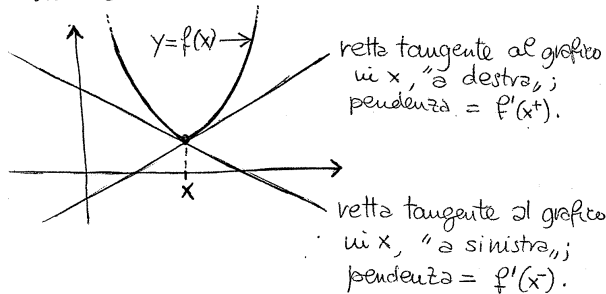 y=f(x)
retta tangente al grafico
in x, "a destra„;
pendenza = f'(x⁺).
x
retta tangente al grafico
in x, "a sinistra„;
pendenza = f'(x⁻).